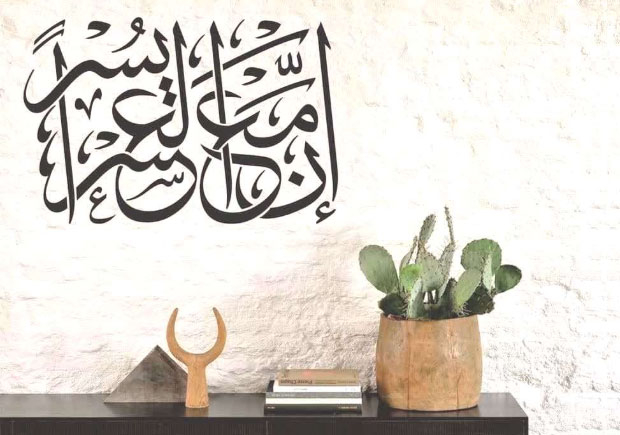 إِنَّ مَعَ الْعُسْرِ يُسْراً